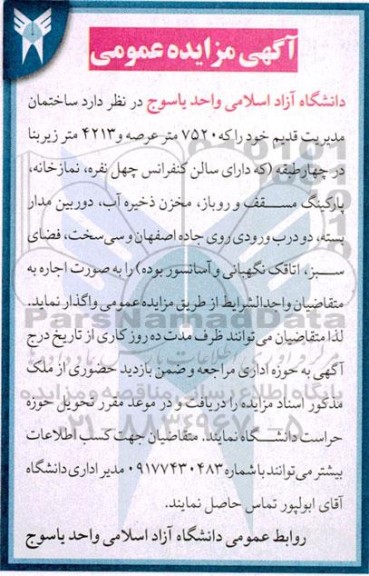 آگهی مزایده عمومی
دانشگاه آزاد اسلامی واحد یاسوج در نظر دارد ساختمان
مدیریت قدیم خود را که ۷۵۲۰ متر عرصه و ۴۲۱۳ متر زیربنا
در چهارطبقه (که دارای سالن کنفرانس چهل نفره، نمازخانه،
پارکینگ مسقف و روباز، مخزن ذخیره آب، دوربین مدار
بسته، دو درب ورودی روی جاده اصفهان و سی سخت، فضای
سبز، اتاقک نگهبانی و آسانسور بوده) را به صورت اجاره به
متقاضیان واجدالشرایط از طریق مزایده عمومی واگذار نماید.
لذا متقاضیان می‌توانند ظرف مدت ده روز کاری از تاریخ درج
آگهی به حوزه اداری مراجعه و ضمن بازدید حضوری از ملک
مذکور اسناد مزایده را دریافت و در موعد مقرر تحویل حوزه
حراست دانشگاه نمایند. متقاضیان جهت کسب اطلاعات
بیشتر می‌توانند با شماره ۰۹۱۷۷۴۳۰۴۸۳ مدیر اداری دانشگاه
آقای ابولپور تماس حاصل نمایند.
روابط عمومی دانشگاه آزاد اسلامی واحد یاسوج
ParsNamadData
پایگاه اطلاع رسانی مناقصه و مزایده
۰۲۱-۸۸۳۴۹۶۷۰-۵